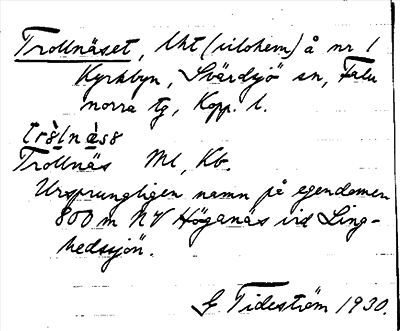 Trollnäset, lht (sidohem) å nr 1
Kyrkbyn, Svärdsjö sn, Falu
norra tg, Kopp. l.
Trollnäs Ml, Kb.
Ursprungligen namn på egendomen
800 m NV Höganäs vid Ling-
hedssjön.
G Tideström 1930.